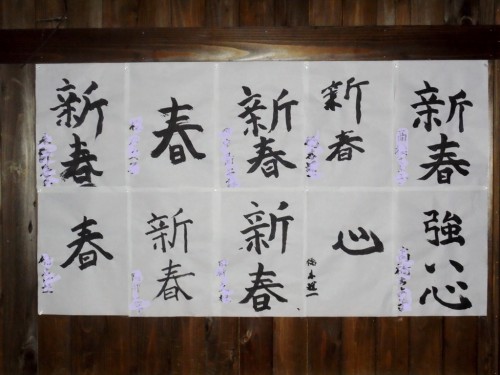 新春
春
新春
新春
新春
春
新春
新春
心
強い心